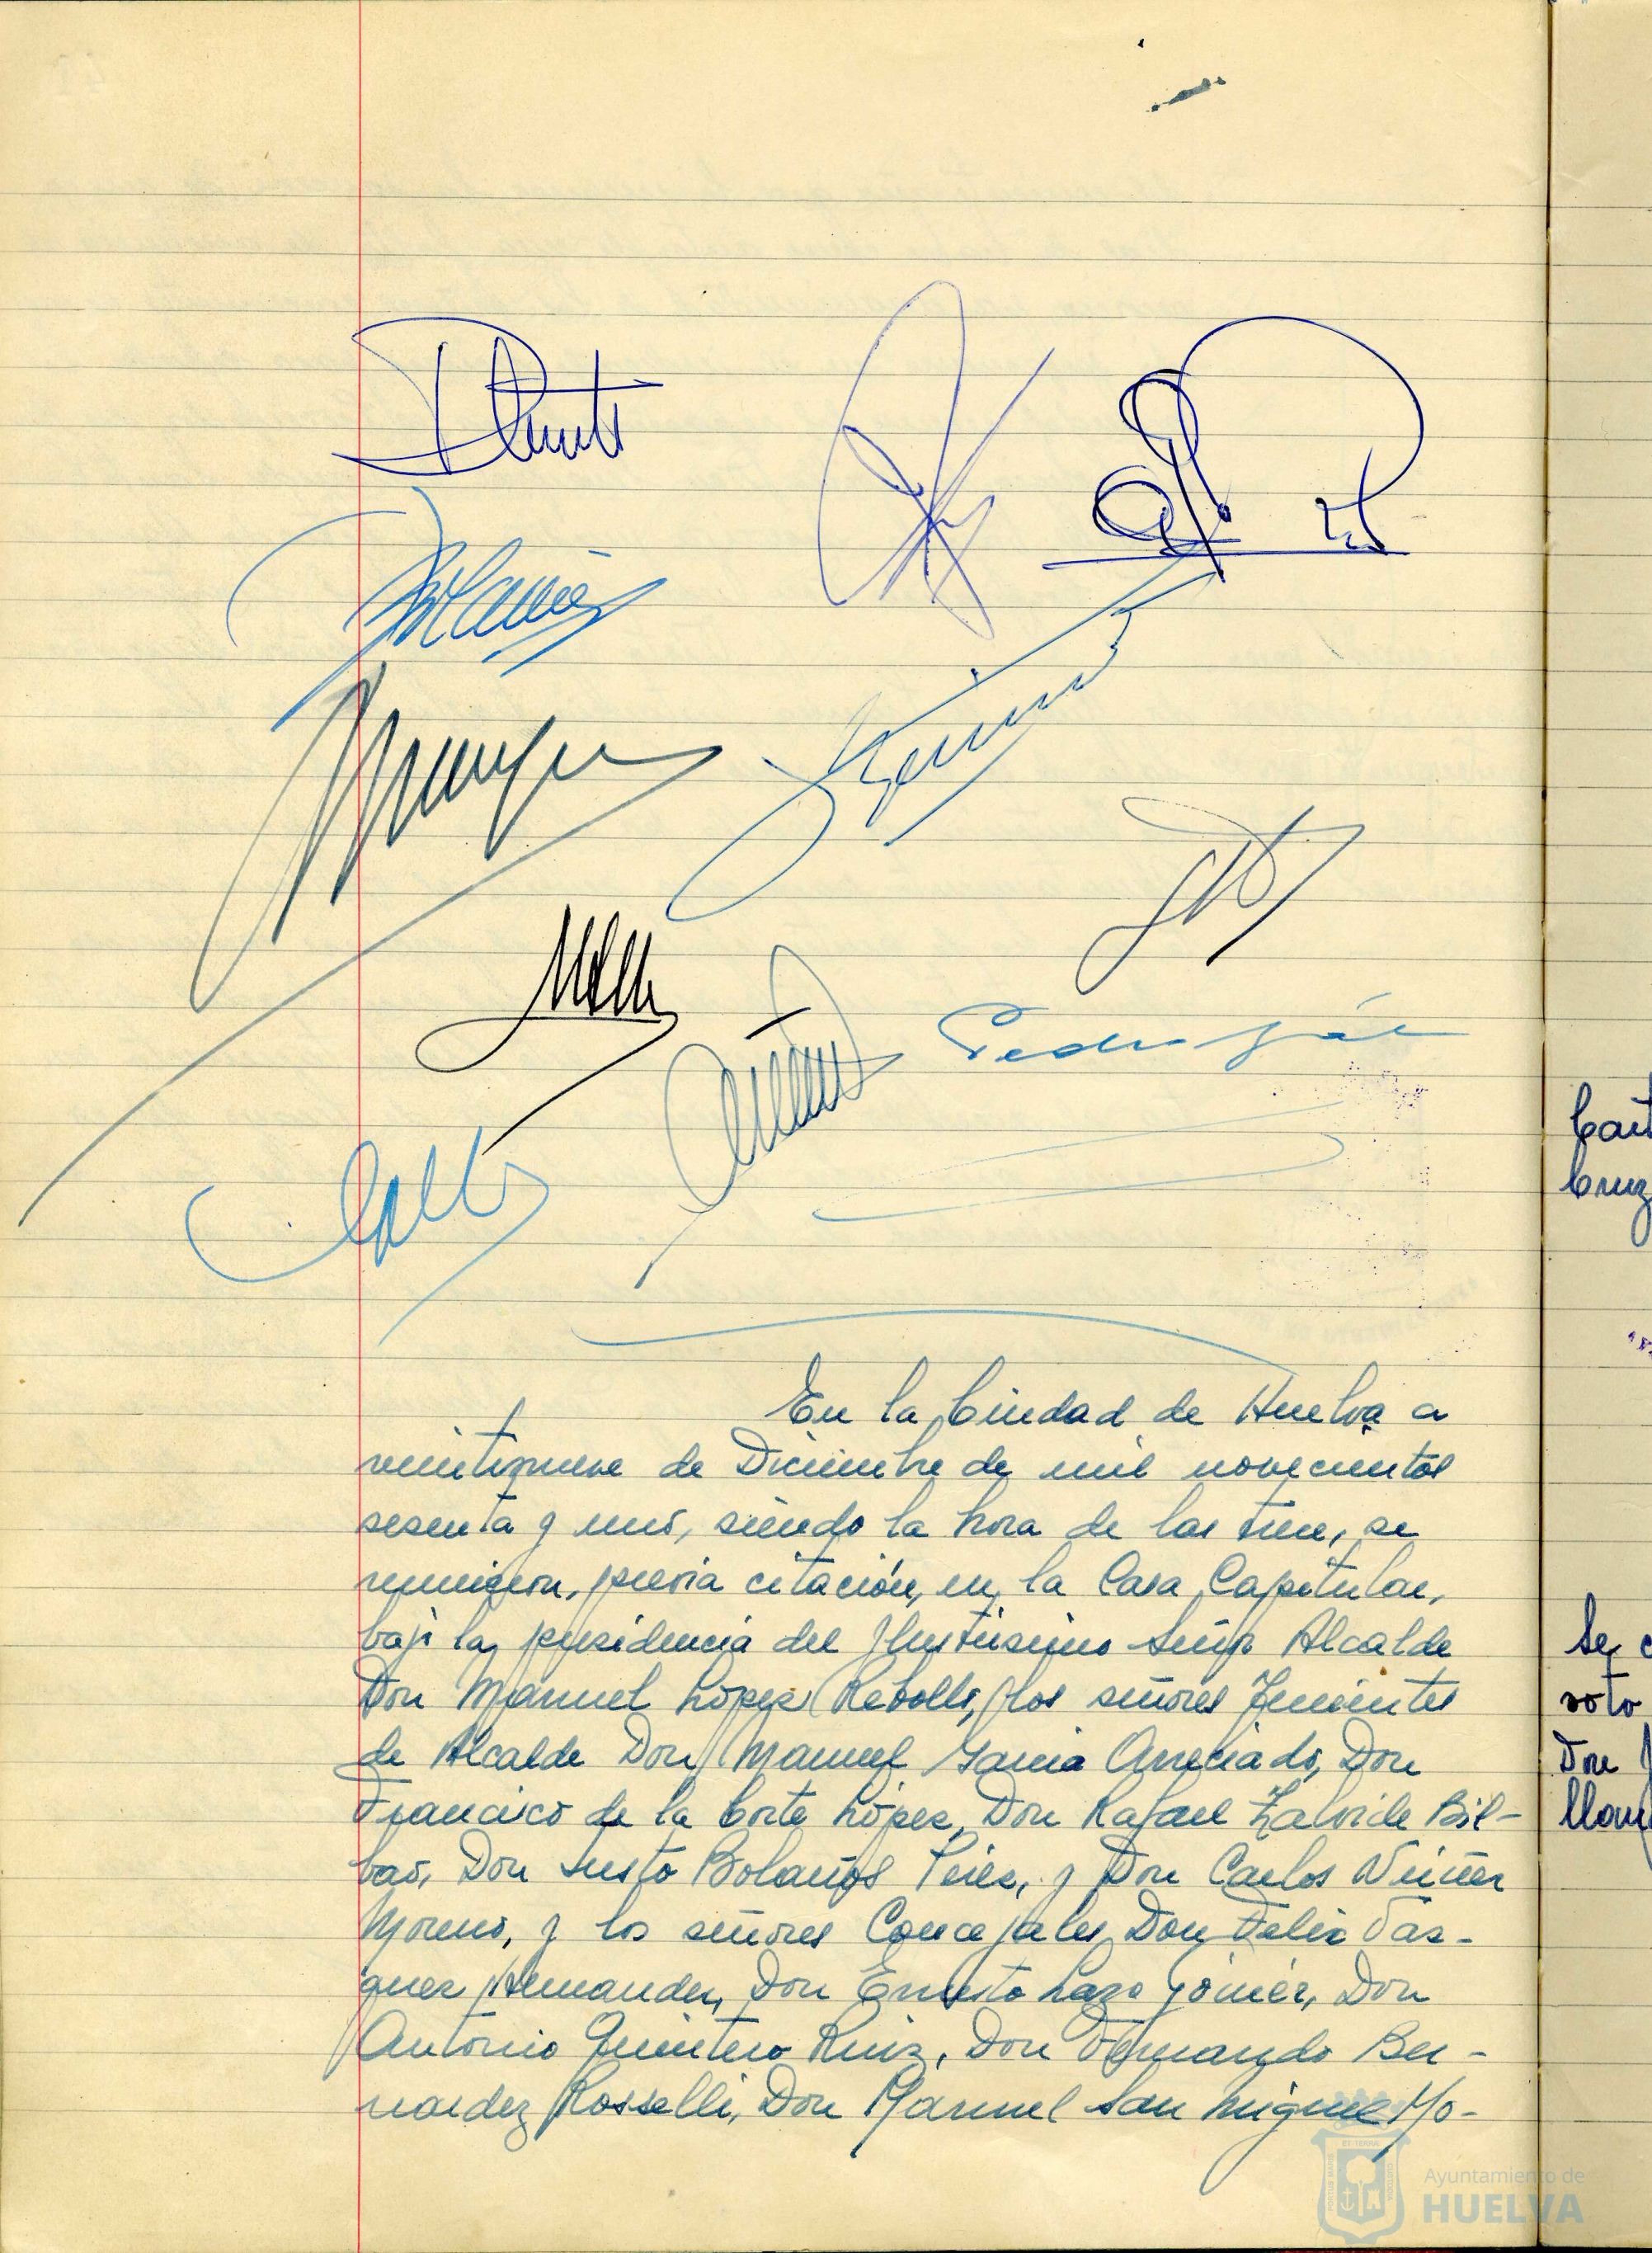 Bolaños
Pedro Gál
En la Ciudad de Huelva a
veintinueve de Diciembre de mil novecientos
sesenta y uno, siendo la hora de las trece, se
reunieron, previa citación, en la Casa Capitular,
bajo la presidencia del Ilustrísimo Señor Alcalde
Don Manuel López Rebollo, los señores Tenientes
de Alcalde Don Manuel García Arreciado, Don
Francisco de la Corte López, Don Rafael Zalvide Bil-
bao, Don Justo Bolaños Pérez, y Don Carlos Núñez
Moreno, y los señores Concejales Don Felix Váz-
quez Hernandez, Don Ernesto Lazo Gómez, Don
Antonio Quintero Ruiz, Don Fernando Ber-
nardez Rosselli, Don Manuel San Miguel Mo-
Cruz
Se
voto
Don
Ayuntamiento de
HUELVA